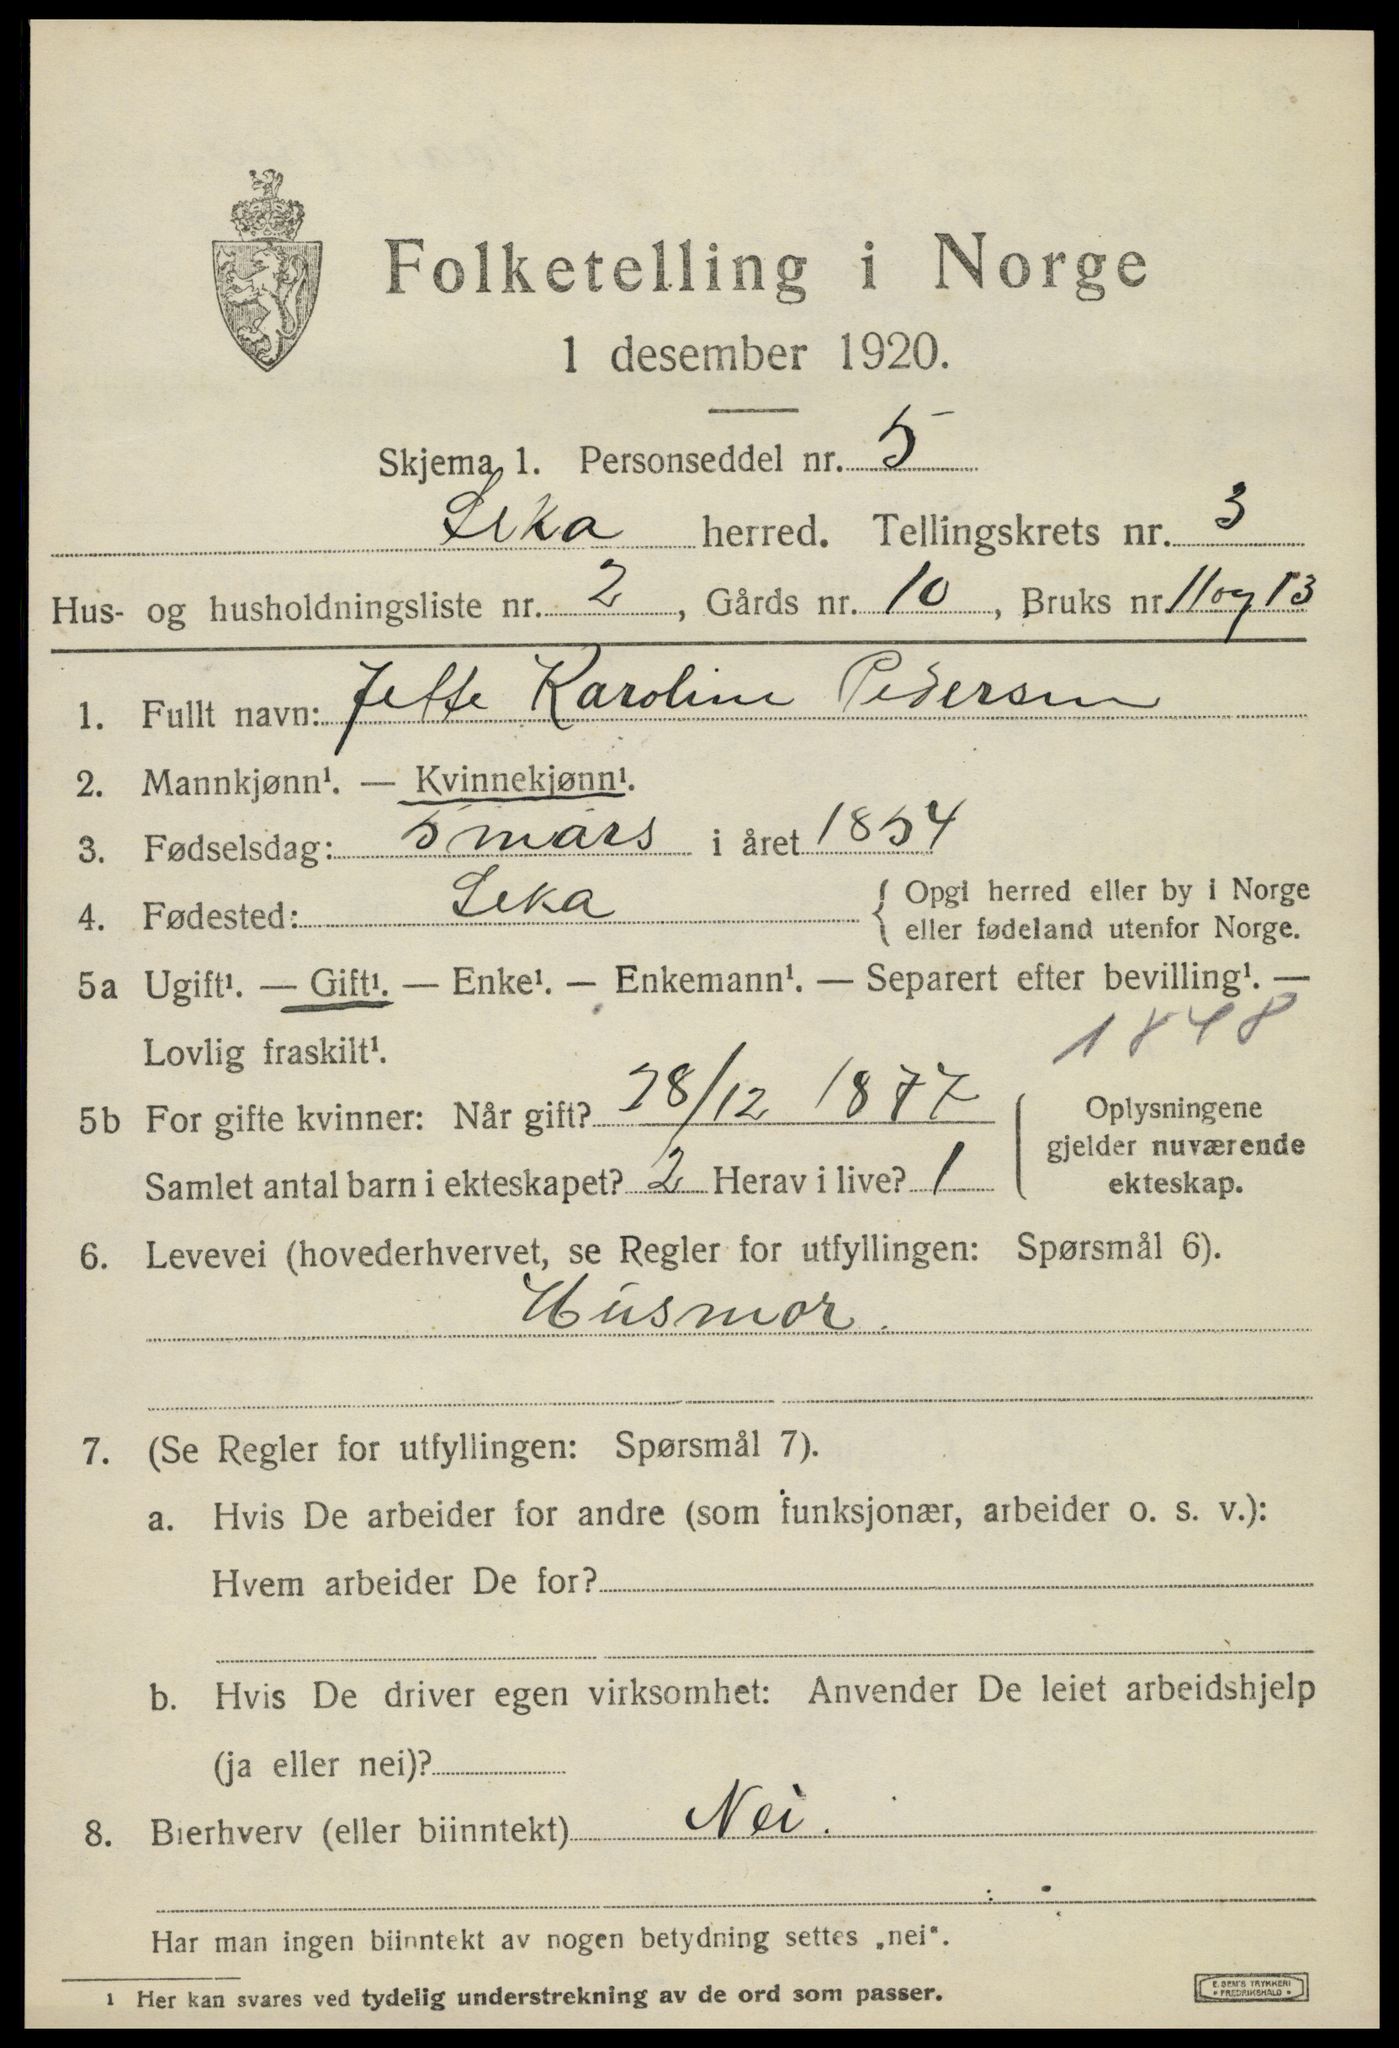 Folketelling i Norge
1 desember 1920.
Skjema 1. Personseddel nr. 5
Leka herred. Tellingskrets nr. 3
Hus- og husholdningsliste nr. 2, Gårds nr. 10, Bruks nr. 11 og 13
1. Fullt navn: Jette Karoline Pedersen
2. Mannkjønn¹. — Kvinnekjønn¹.
3. Fødselsdag: 5 mars i året 1854
4. Fødested: Leka { Opgi herred eller by i Norge
eller fødeland utenfor Norge.
5a Ugift¹. — Gift¹. — Enke¹. — Enkemann¹. — Separert efter bevilling¹. —
Lovlig fraskilt¹. 1848
5b For gifte kvinner: Når gift? 28/12 1877
Samlet antal barn i ekteskapet? 2 Herav i live? 1
Oplysningene
gjelder nuværende
ekteskap.
6. Levevei (hovederhvervet, se Regler for utfyllingen: Spørsmål 6).
Husmor.
7. (Se Regler for utfyllingen: Spørsmål 7).
a. Hvis De arbeider for andre (som funksjonær, arbeider o. s. v.):
Hvem arbeider De for?
b. Hvis De driver egen virksomhet: Anvender De leiet arbeidshjelp
(ja eller nei)?
8. Bierhverv (eller biinntekt) Nei.
Har man ingen biinntekt av nogen betydning settes „nei“.
1 Her kan svares ved tydelig understrekning av de ord som passer.
E. SEM'S TRYKKERI
• FREDRIKSHALD •